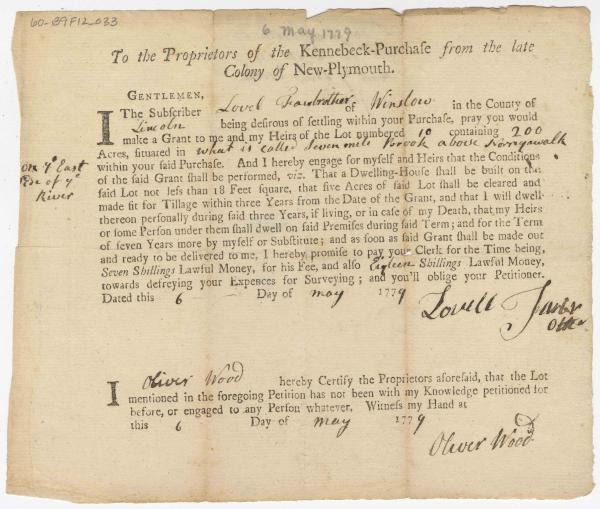 60-B9F12_033
6 May 1779
To the Proprietors of the Kennebeck-Purchase from the late
Colony of New-Plymouth.
GENTLEMEN,
I The Subscriber Lovel Fairbrother of Winslow in the County of
Lincoln being desirous of settling within your Purchase, pray you would
make a Grant to me and my Heirs of the Lot numbered 10 containing 200
Acres, situated in what is called Seven mile Brook above Norrigawalk
on ye East
Side of ye
River
within your said Purchase. And I hereby engage for myself and Heirs that the Conditions
of the said Grant shall be performed, viz. That a Dwelling-House shall be built on the
said Lot not less than 18 Feet square, that five Acres of said Lot shall be cleared and
made fit for Tillage within three Years from the Date of the Grant, and that I will dwell
thereon personally during said three Years, if living, or in case of my Death, that my Heirs
or some Person under them shall dwell on said Premises during said Term; and for the Term
of seven Years more by myself or Substitute; and as soon as said Grant shall be made out
and ready to be delivered to me, I hereby promise to pay your Clerk for the Time being,
Seven Shillings Lawful Money, for his Fee, and also Shillings Lawful Money,
towards defreying your Expences for Surveying; and you'll oblige your Petitioner.
Dated this 6 Day of may 1779
Lovell
I Oliver Wood hereby Certify the Proprietors aforesaid, that the Lot
mentioned in the foregoing Petition has not been with my Knowledge petitioned for
before, or engaged to any Person whatever. Witness my Hand at
this 6 Day of may 1779
Oliver Wood